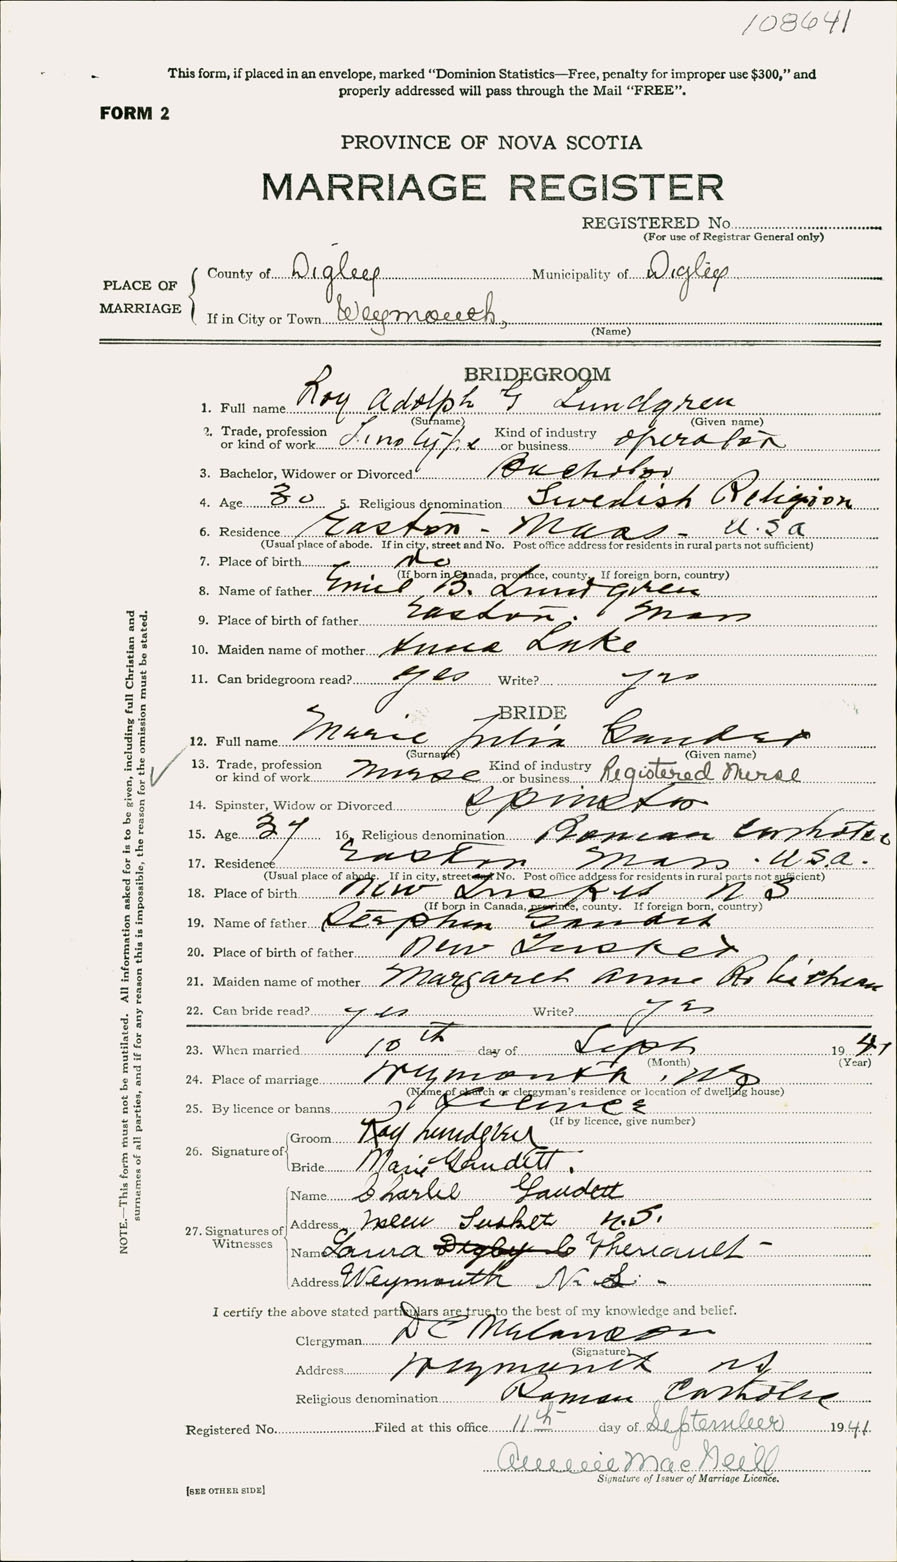 108641
This form, if placed in an envelope, marked “Dominion Statistics—Free, penalty for improper use $300,” and
properly addressed will pass through the Mail “FREE”.
FORM 2
PROVINCE OF NOVA SCOTIA
MARRIAGE REGISTER
REGISTERED No.
(For use of Registrar General only)
PLACE OF MARRIAGE
County of Digby Municipality of Digby
If in City or Town Weymouth,
(Name)
BRIDEGROOM
1. Full name Roy Adolph G Lundgren
(Surname) (Given name)
2. Trade, profession or kind of work Linotype Kind of industry or business operator
3. Bachelor, Widower or Divorced Bachelor
4. Age 30 5. Religious denomination Swedish Religion
6. Residence Easton - Mass - U.S.A
(Usual place of abode. If in city, street and No. Post office address for residents in rural parts not sufficient)
7. Place of birth do
(If born in Canada, province, county. If foreign born, country)
8. Name of father Emil B. Lundgren
9. Place of birth of father Easton. Mass
10. Maiden name of mother Anna Lake
11. Can bridegroom read? yes Write? yes
BRIDE
12. Full name Marie Julia Gaudet
(Surname) (Given name)
13. Trade, profession or kind of work Nurse Kind of industry or business Registered Nurse
14. Spinster, Widow or Divorced Spinster
15. Age 37 16. Religious denomination Roman Catholic
17. Residence Easton Mass. U.S.A.
(Usual place of abode. If in city, street and No. Post office address for residents in rural parts not sufficient)
18. Place of birth New Tusket N S
(If born in Canada, province, county. If foreign born, country)
19. Name of father Stephen Gaudet
20. Place of birth of father New Tusket
21. Maiden name of mother Margaret Anne Robicheau
22. Can bride read? yes Write? yes
23. When married 10th day of Sept 1941
(Month) (Year)
24. Place of marriage Weymouth, NS
(Name of church or clergyman's residence or location of dwelling house)
25. By licence or banns Licence
(If by licence, give number)
26. Signature of
Groom Roy Lundgren
Bride Marie Gaudett.
27. Signatures of Witnesses
Name Charlie Gaudett
Address New Tusket N.S.
Name Laura Digby Co Theriault
Address Weymouth N.S.
I certify the above stated particulars are true to the best of my knowledge and belief.
Clergyman D C Melanson
(Signature)
Address Weymouth NS
Religious denomination Roman Catholic
Registered No. Filed at this office 11th day of September 1941
Annie MacNeill
Signature of Issuer of Marriage Licence.
[SEE OTHER SIDE]
NOTE.—This form must not be mutilated. All information asked for is to be given, including full Christian and
surnames of all parties, and if for any reason this is impossible, the reason for the omission must be stated.